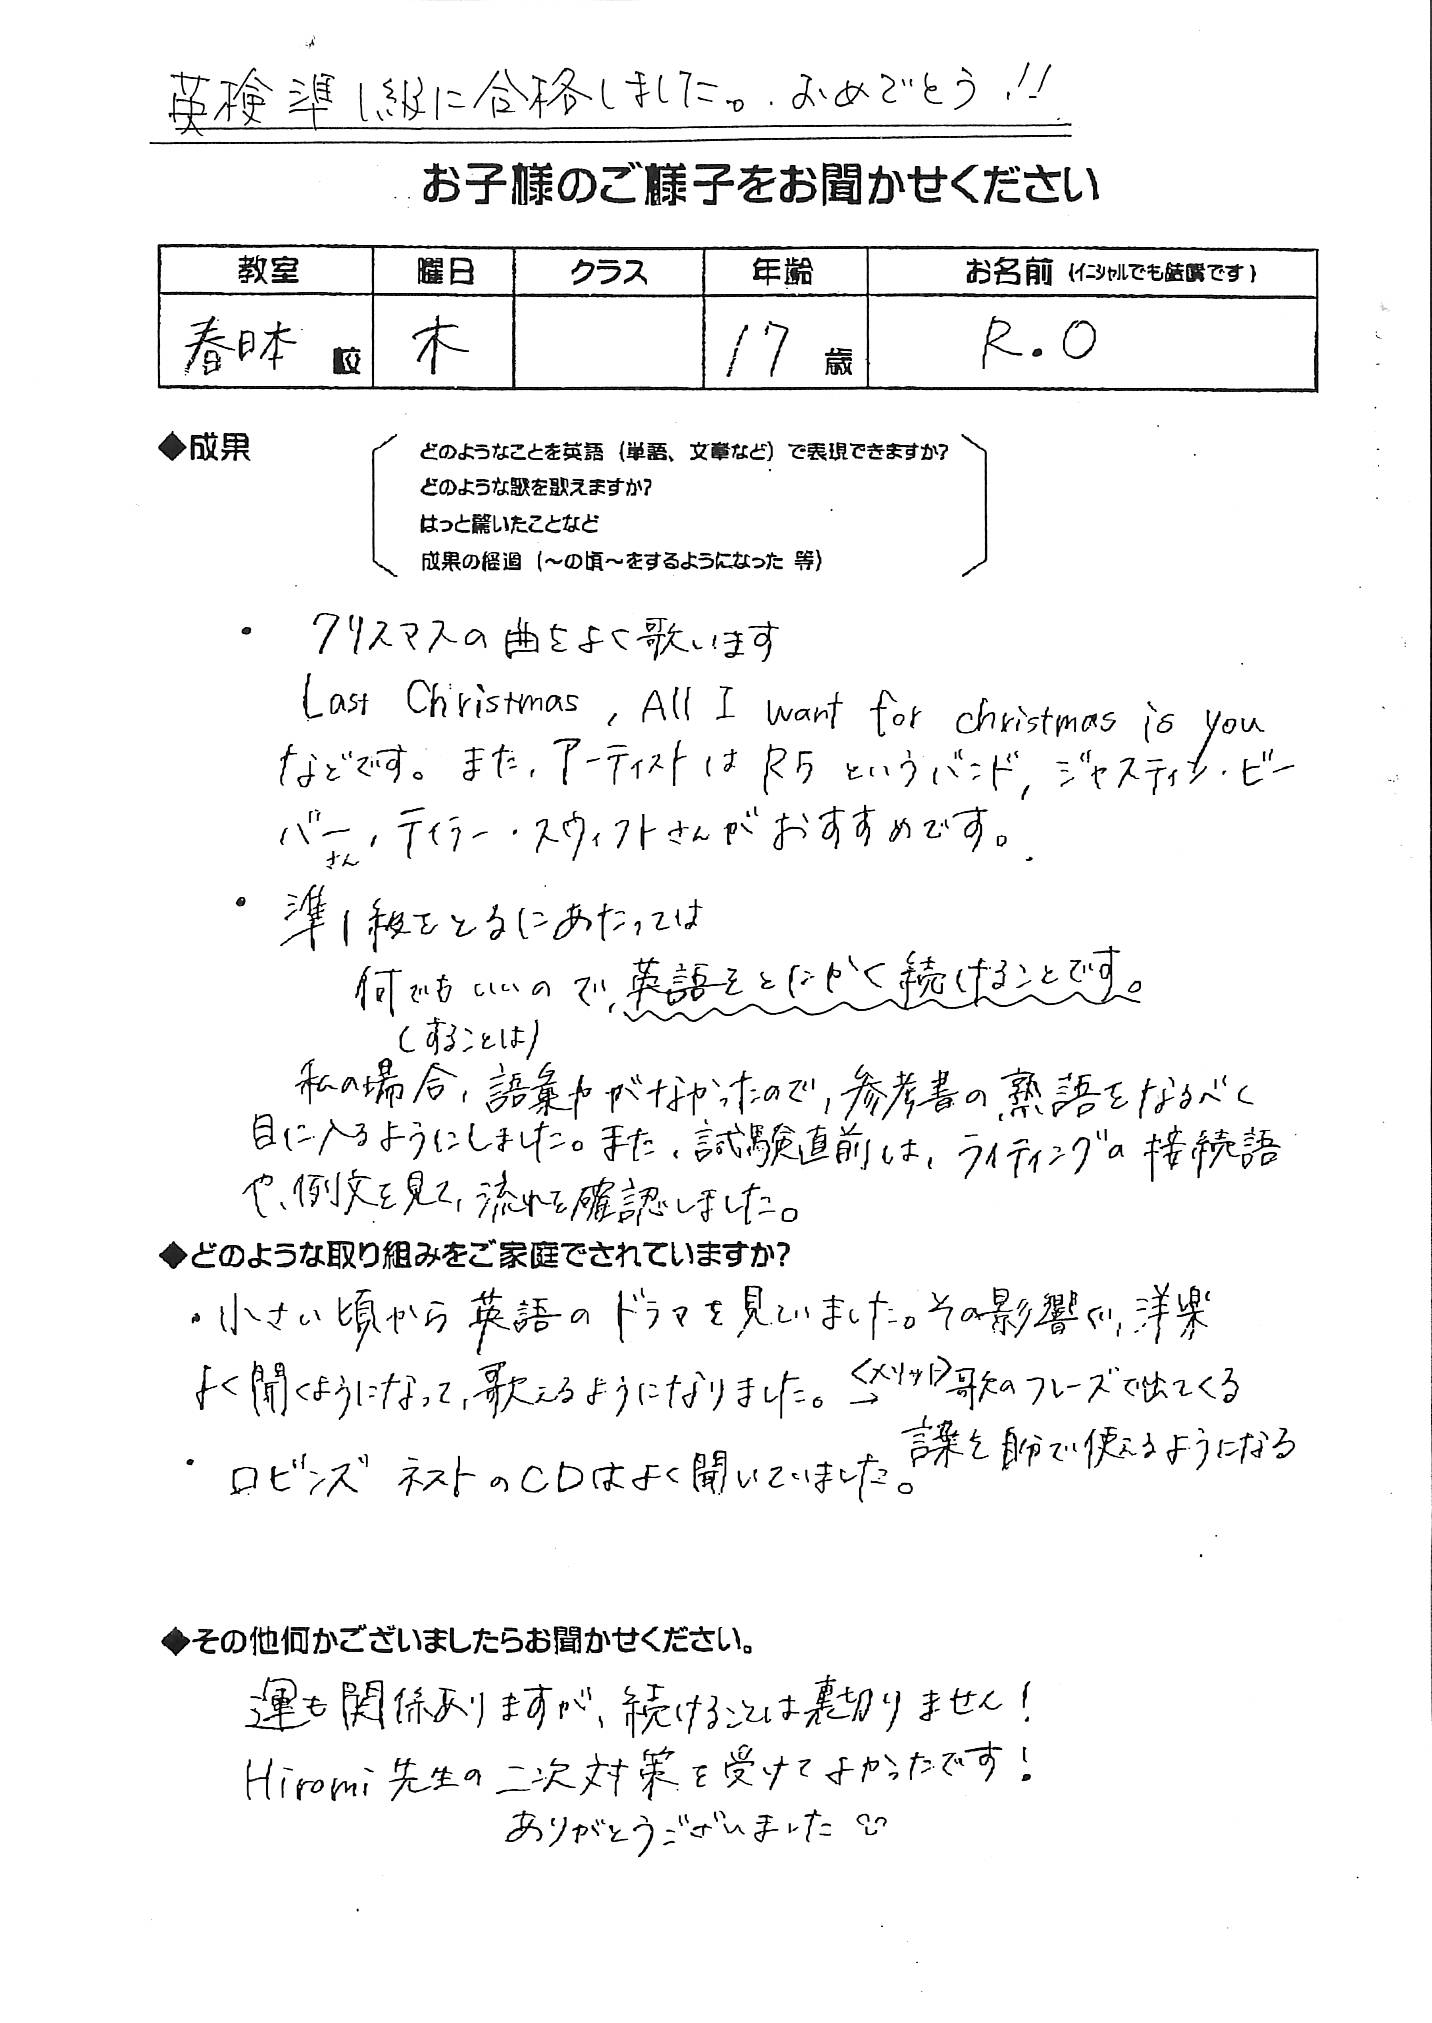 英検準1級に合格しました。おめでとう!!
お子様のご様子をお聞かせください
教室 曜日 クラス 年齢 お名前 (イニシャルでも結構です)
春日本 校 木 17 歳 R.O
◆成果
どのようなことを英語(単語、文章など)で表現できますか?
どのような歌を歌えますか?
はっと驚いたことなど
成果の経過(~の頃~をするようになった 等)
・ クリスマスの曲をよく歌います
Last Christmas, All I want for christmas is you
などです。また、アーティストは R5 というバンド, ジャスティン・ビー
バーさん, テイラー・スウィフトさんがおすすめです。
・ 準1級をとるにあたっては
何でもいいので、英語をとにかく続けることです。
(することは)
私の場合, 語彙力がなかったので, 参考書の熟語をなるべく
目に入るようにしました。また、試験直前は、ライティングの接続語
や、例文を見て、流れを確認しました。
◆どのような取り組みをご家庭でされていますか?
・小さい頃から英語のドラマを見ていました。その影響で, 洋楽
よく聞くようになって, 歌えるようになりました。<メリット>→歌のフレーズで出てくる
言葉を自分で使えるようになる
・ロビンズ ネストのCDはよく聞いていました。
◆その他何かございましたらお聞かせください。
運も関係ありますが、続けることは裏切りません!
Hiromi先生の二次対策を受けてよかったです!
ありがとうございました